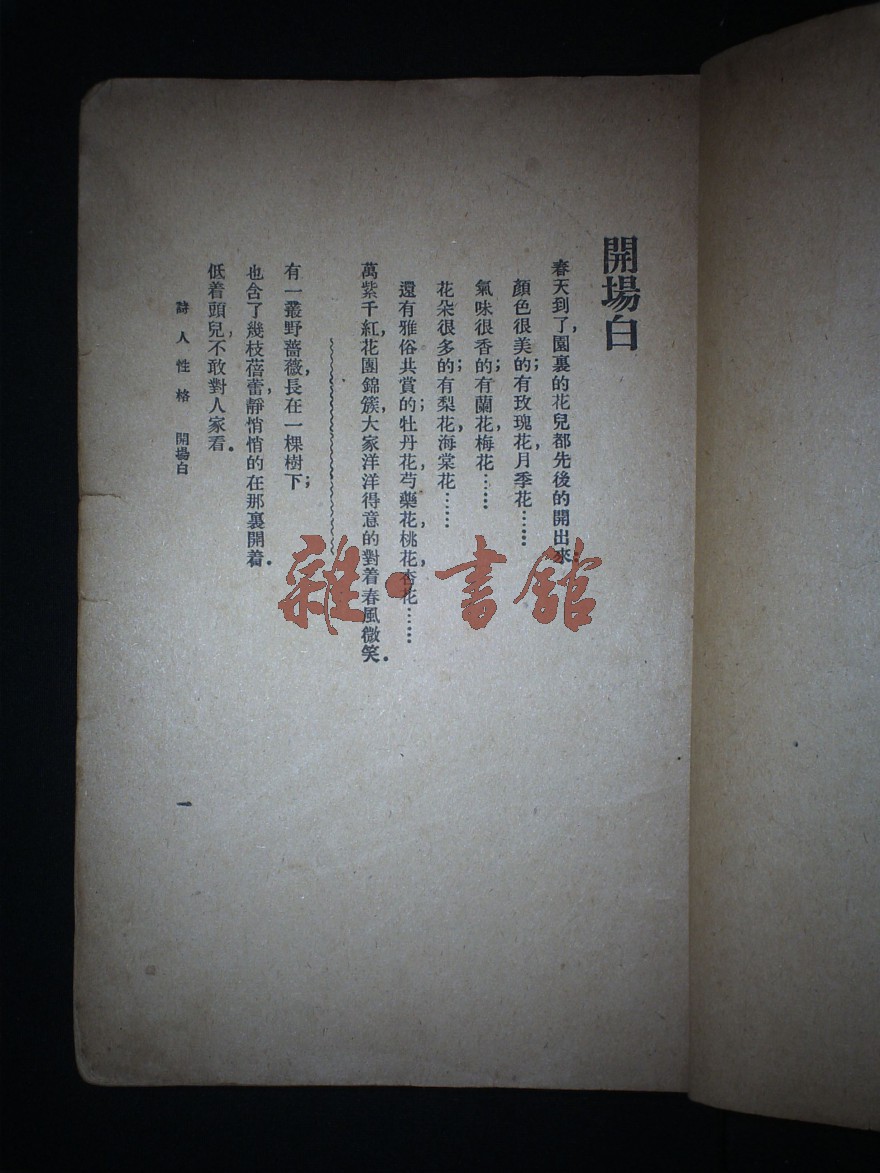 開場白
春天到了,園裏的花兒都先後的開出來:
顏色很美的有玫瑰花,月季花……;
氣味很香的有蘭花,梅花……;
花朵很多的有梨花,海棠花……;
還有雅俗共賞的牡丹花,芍藥花,桃花,杏花……;
萬紫千紅,花團錦簇,大家洋洋得意的對着春風微笑.
有一叢野薔薇,長在一棵樹下;
也含了幾枝蓓蕾,靜悄悄的在那裏開着.
低着頭兒,不敢對人家看.
詩人性格 開場白
一
雜·書館